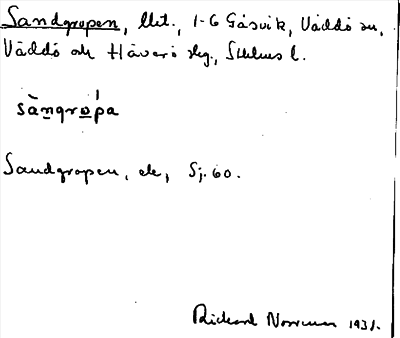 Sandgropen, llit., 1-6 Gåsvik, Väddö sn,
Väddö och Häverö slg., Sthlms l.
sàngrópa
Sandgropen, ek, Sj. 60.
Rickard Norrman 1931.